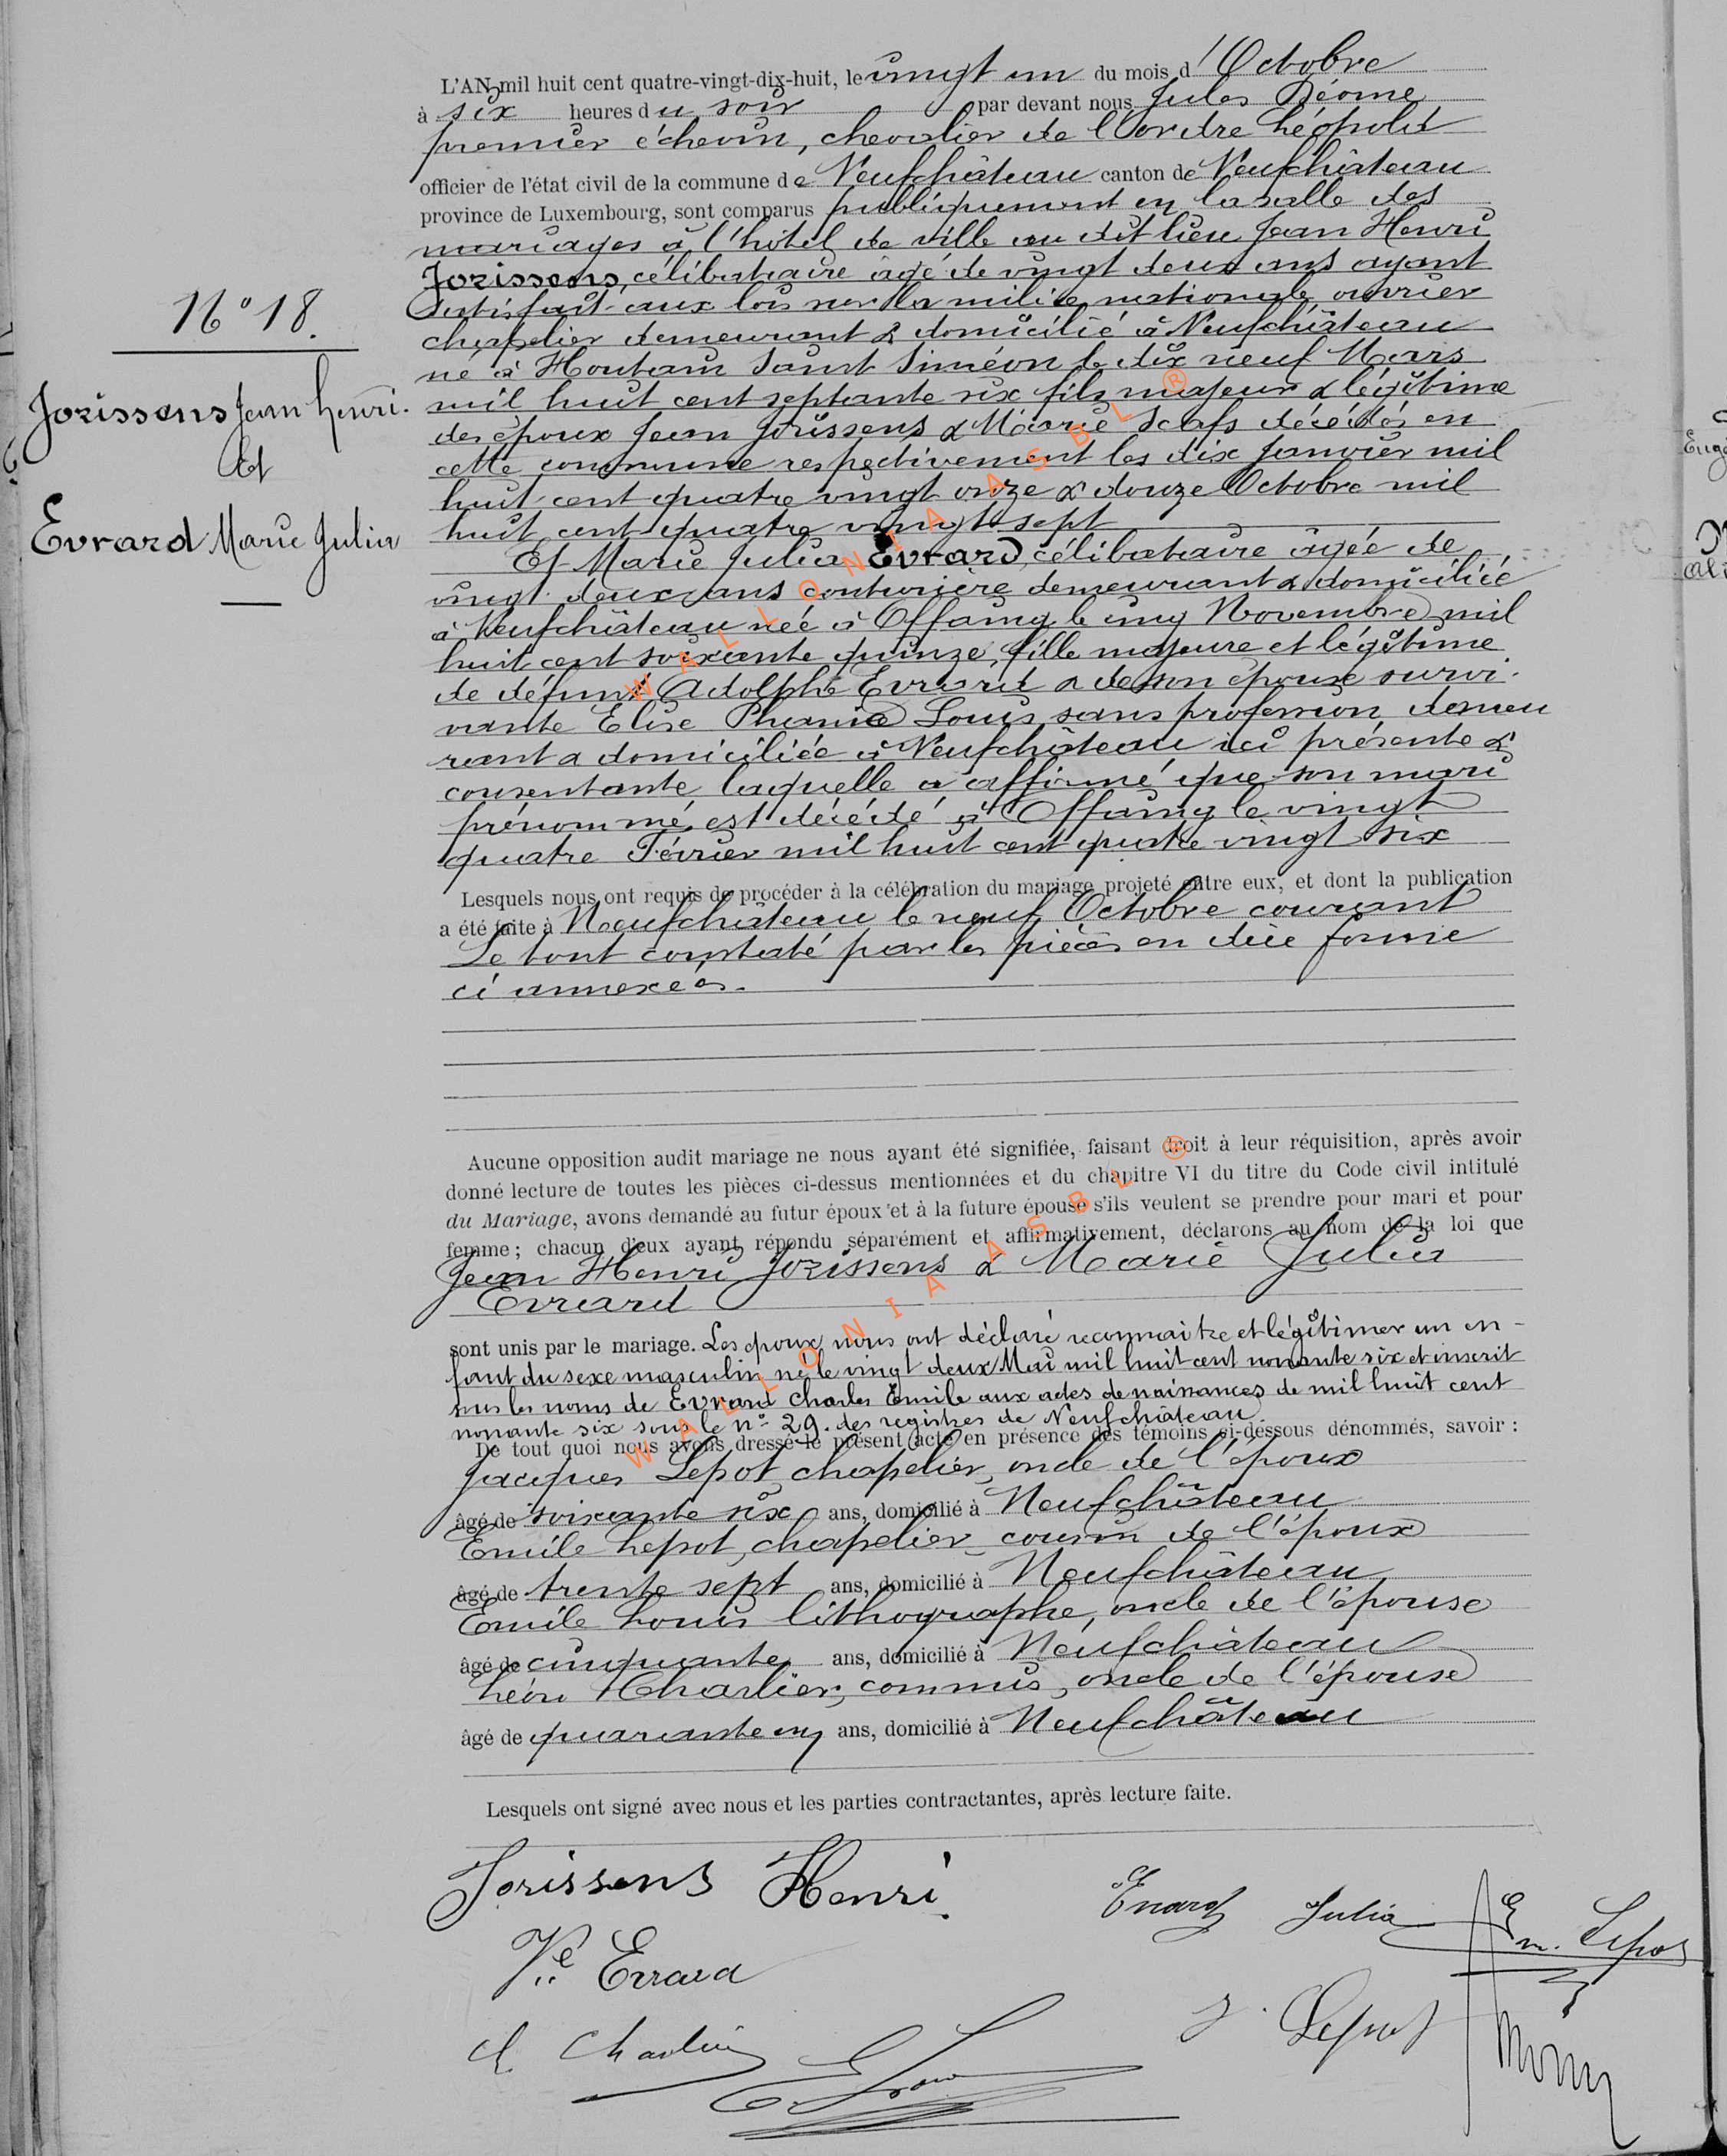 L'AN mil huit cent quatre-vingt-dix-huit, le vingt un du mois d'Octobre
à six heures du soir par devant nous Jules Déome
premier échevin, chevalier de l'ordre Léopold
officier de l'état civil de la commune de Neufchâteau canton de Neufchâteau
province de Luxembourg, sont comparus publiquement en la salle des
mariages à l'hôtel de ville au dit lieu Jean Henri
Jorissens, célibataire âgé de vingt deux ans ayant
satisfait aux lois sur la milice nationale, ouvrier
chapelier demeurant & domicilié à Neufchâteau
né à Houtain Saint Siméon le dix neuf Mars
mil huit cent septante six fils majeur & légitime
des époux Jean Jorissens & Marie décédés en
cette commune respectivement les dix Janvier mil
huit cent quatre vingt onze & douze Octobre mil
huit cent quatre vingt sept
Et Marie Julia Evrard, célibataire âgée de
vingt deux ans couturière demeurant & domiciliée
à Neufchâteau née à Offaing le cinq Novembre mil
huit cent soixante quinze, fille majeure et légitime
de défunt Adolphe Evrard & de son épouse survi-
vante Elise Phanie Louis sans profession demeu
rant & domiciliée à Neufchâteau ici présente &
consentante laquelle a affirmé que son mari
prénommé est décédé à Offaing le vingt
quatre Février mil huit cent quatre vingt six
Lesquels nous ont requis de procéder à la célébration du mariage projeté entre eux, et dont la publication
a été faite à Neufchâteau le neuf Octobre courant
Le tout constaté par les pièces en due forme
ci annexées.
N° 18.
Jorissens Jean henri.
Et
Evrard Marie Julia
Aucune opposition audit mariage ne nous ayant été signifiée, faisant droit à leur réquisition, après avoir
donné lecture de toutes les pièces ci-dessus mentionnées et du chapitre VI du titre du Code civil intitulé
du Mariage, avons demandé au futur époux et à la future épouse s'ils veulent se prendre pour mari et pour
femme ; chacun d'eux ayant répondu séparément et affirmativement, déclarons au nom de la loi que
Jean Henri Jorissens & Marie Julia
Evrard
sont unis par le mariage. Les époux nous ont déclaré reconnaitre et légitimer un en-
fant du sexe masculin né le vingt deux Mai mil huit cent nonante six et inscrit
sous les noms de Evrard Charles Emile aux actes de naissances de mil huit cent
nonante six sous le n° 29. des registres de Neufchâteau.
De tout quoi nous avons dressé le présent acte en présence des témoins ci-dessous dénommés, savoir :
Jacques Lepot, chapelier, oncle de l'époux
âgé de soixante six ans, domicilié à Neufchâteau
Emile Lepot, chapelier, cousin de l'époux
âgé de trente sept ans, domicilié à Neufchâteau
Emile Louis lithographe, oncle de l'épouse
âgé de cinquante ans, domicilié à Neufchâteau
Léon Charlier, commis, oncle de l'épouse
âgé de quarante un ans, domicilié à Neufchâteau
Lesquels ont signé avec nous et les parties contractantes, après lecture faite.
Jorissens Henri
Evrard Julia
Em. Lepot
Ve Evrard
J. Lepot
Charlier
WALLONIA ASBL ®
WALLONIA ASBL ®